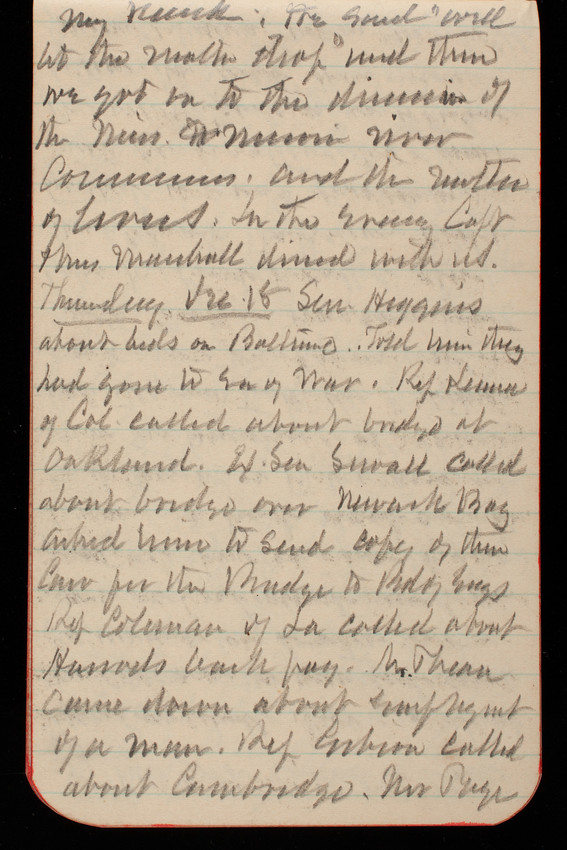 my             : He said "well
let the matter drop" and then
we got on to the discussion of
the Miss. & Missouri river
Commissions. and the matter
of        . In the evening Capt
& Mrs Marshall dined with us.
Thursday, Dec. 18 Sen. Higgins
about bids on Baltimo. Told him they
had gone to Sec of War. Rep
of Cal called about bridge at
Oakland. Ex. Sen Sewall called
about bridge over Newark Bay
asked him to send copy of their
Law for the Bridge to Bd of Engs
Rep Coleman of La called about
Harrods back pay. Mr.
came down about
of a man. Rep         called
about Cambridge. Mr Page